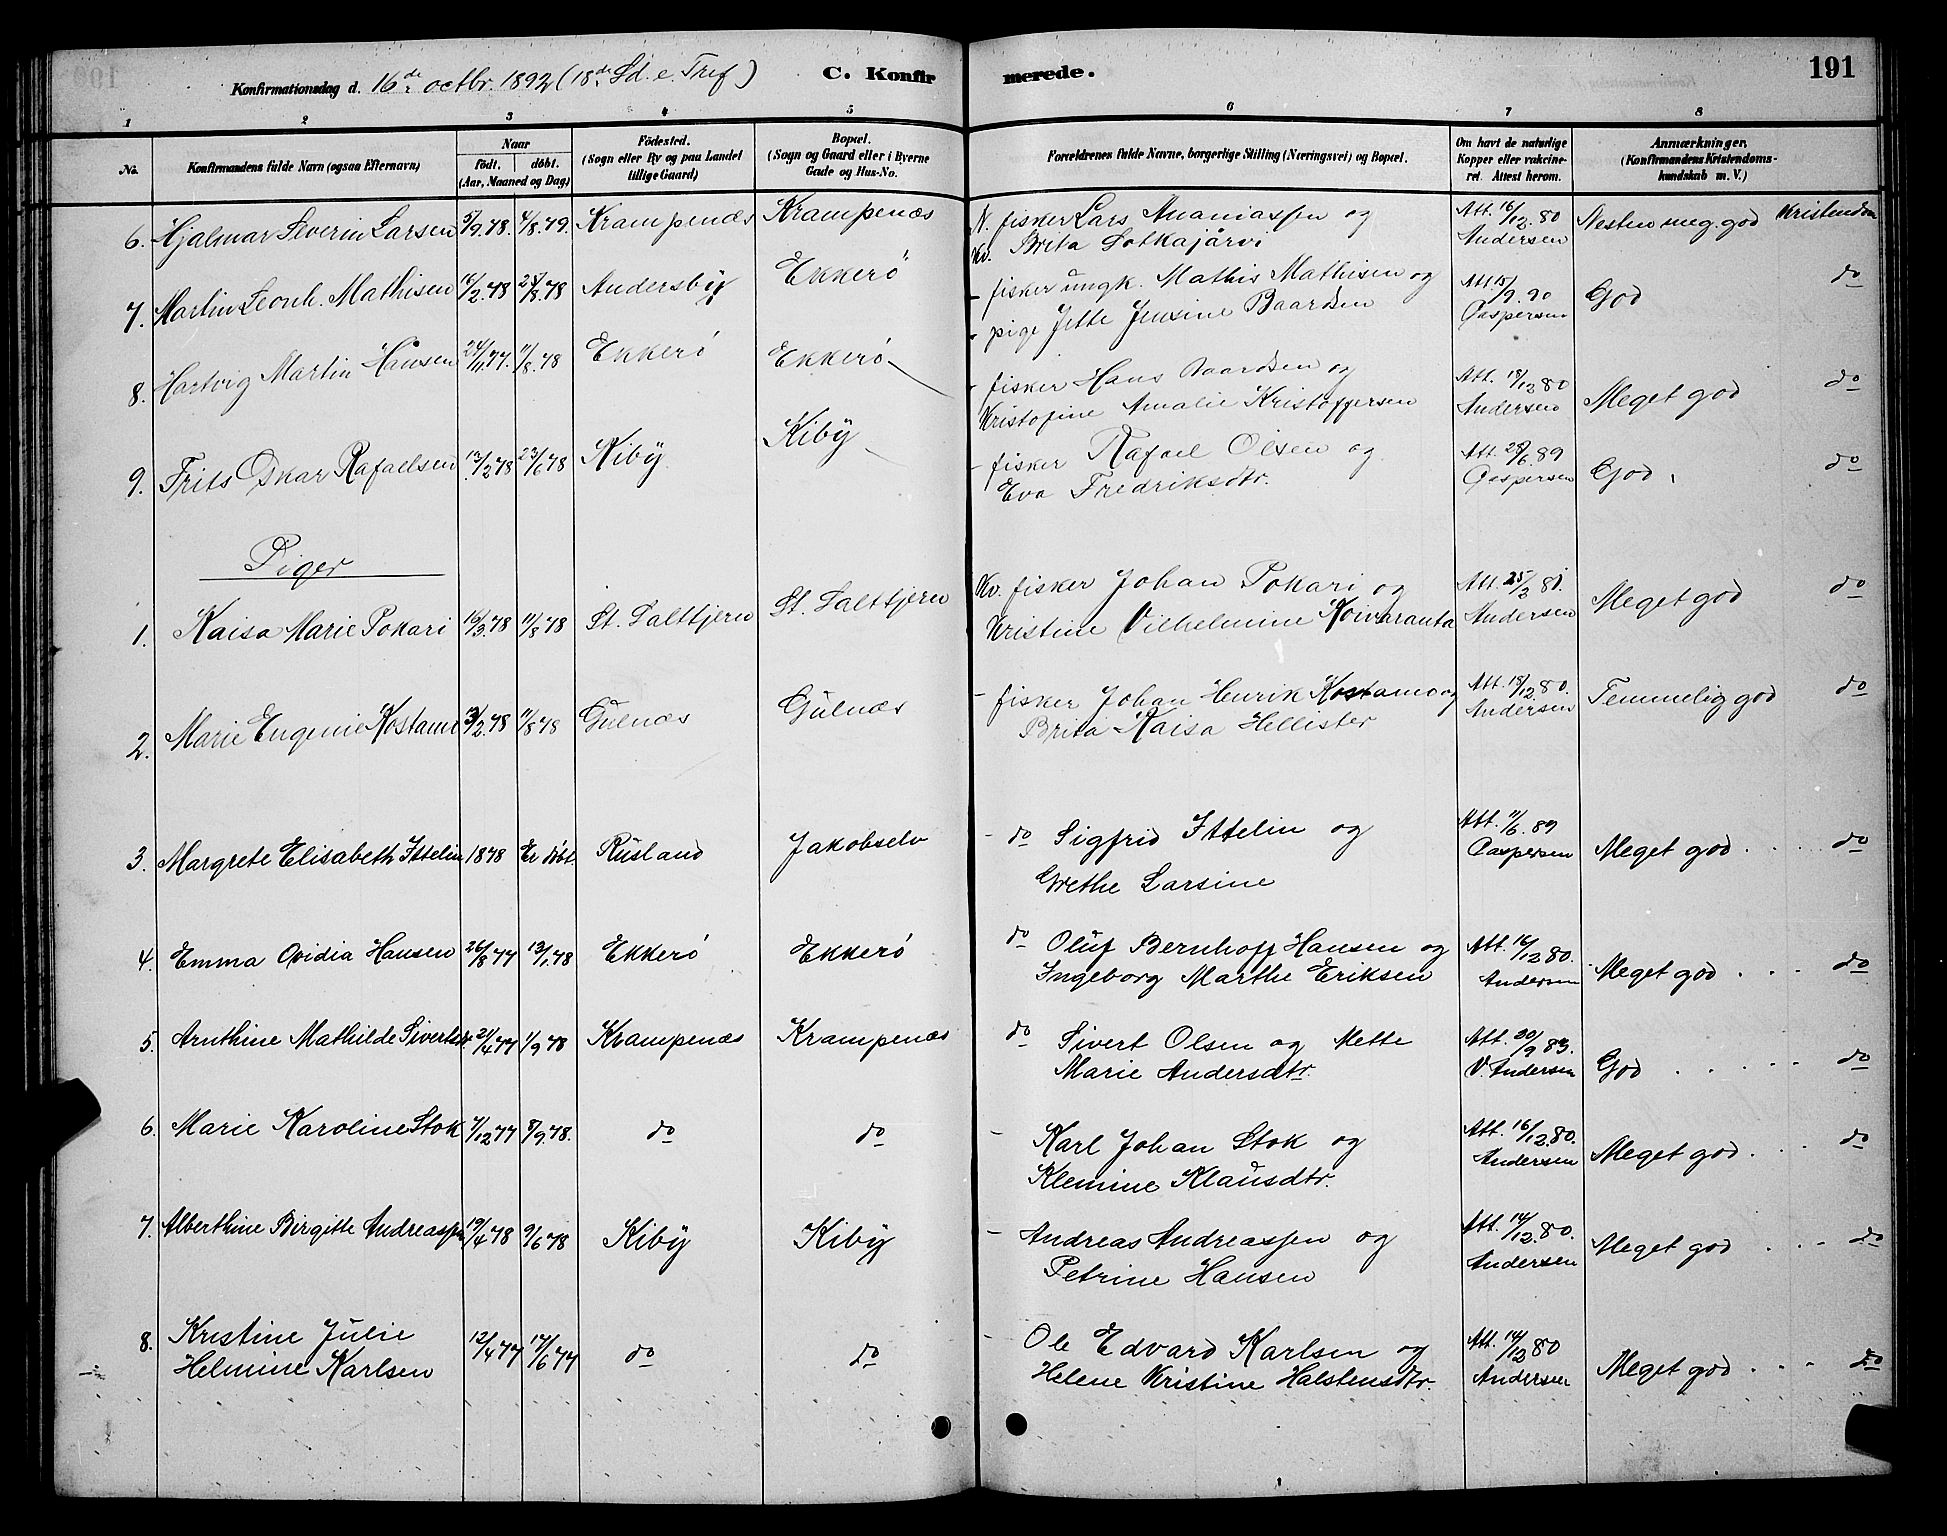 Konfirmationsdag d. 16de octbr. 1892 (18de Sd. e. Tref) C. Konfirmerede. 191
1 2 3 4 5 6 7 8
No. Konfirmandens fulde Navn (ogsaa Efternavn) Naar födt. döbt. (Aar, Maaned og Dag) Födested. (Sogn eller By og paa Landet tillige Gaard) Bopæl. (Sogn og Gaard eller i Byerne Gade og Hus-No. Forældrenes fulde Navne, borgerlige Stilling (Næringsvei) og Bopæl. Om havt de naturlige Kopper eller vakcineret. Attest herom. Anmærkninger. (Konfirmandens Kristendomskundskab m. V.)
6. Hjalmar Severin Larsen 5/9.78. 4/8.79. Krampenæs Krampenæs N. fisker Lars Ananiassen og Att. 16/12.80 Nesten meg. god Kristendom
Kv. Brita Sotkajärvi Andersen
7. Martin Leonh. Mathisen 16/2.78 25/8.78 Andersby Ekkerö - fisker ungk. Mathis Mathisen og Att 15/9.90 God do
- pige Jette Jensine Baardsen Caspersen
8. Hartvig Martin Hansen 24/11.77. 11/8.78 Ekkerö Ekkerö - fisker Hans Baardsen og Att. 18/12 80 Meget god do
Kristofine Amalie Kristoffersen Andersen
9. Frits Oskar Rafaelsen 13/2.78 23/6.78 Kiby Kiby - fisker Rafael Olsen og Att. 28/6.89 God. do
Eva Fredriksdtr. Caspersen
Piger
1. Kaisa Marie Pokari 16/3.78 11/8 78 St. Saltfjern St. Saltfjern Kv. fisker Johan Pokari og Att. 25/3 81. Meget god do
Kristine Vilhelmine Koivuranta Andersen
2. Marie Eugenie Kostamo 3/2.78 11/8 78 Gulnæs Gulnæs - fisker Johan Henrik Kostamo og Att. 18/12.80. Temmelig god do
Brita Kaisa Hellister Andersen
3. Margrete Elisabeth Ittelin 1878 Er döbt. Rusland Jakobselv - do Sigfrid Ittelin og Att. 11/6.89 Meget god . . . . do
Grethe Larsine Caspersen
4. Emma Ovidia Hansen 26/8 77 13/1.78 Ekkerö Ekkerö do Oluf Bernhoff Hansen og Att. 16/12 80. Meget god . . . . do
Ingeborg Marthe Eriksen Andersen
5. Arnthine Mathilde Sivertsdtr. 21/4 77 1/9 78 Krampenæs Krampenæs do Sivert Olsen og Mette Att. 20/9 83. God . . . . . do
Marie Andersdtr. V. Andersen
6. Marie Karoline Stok 7/12 77 8/9.78. do do - Karl Johan Stok og Att. 16/12.80. Meget god. . . . do
Klemine Klausdtr. Andersen
7. Alberthine Birgitte Andreassen 19/4 78 9/6 78 Kiby Kiby - Andreas Andreassen og Att. 14/12.80. Meget god . . . do
Petrine Hansen Andersen
8. Kristine Julie 12/4 77 17/6 77 do do - Ole Edvard Karlsen og Att. 14/12 80 Meget god . . . do
Helmine Karlsen Helene Kristine Halstensdtr. Andersen